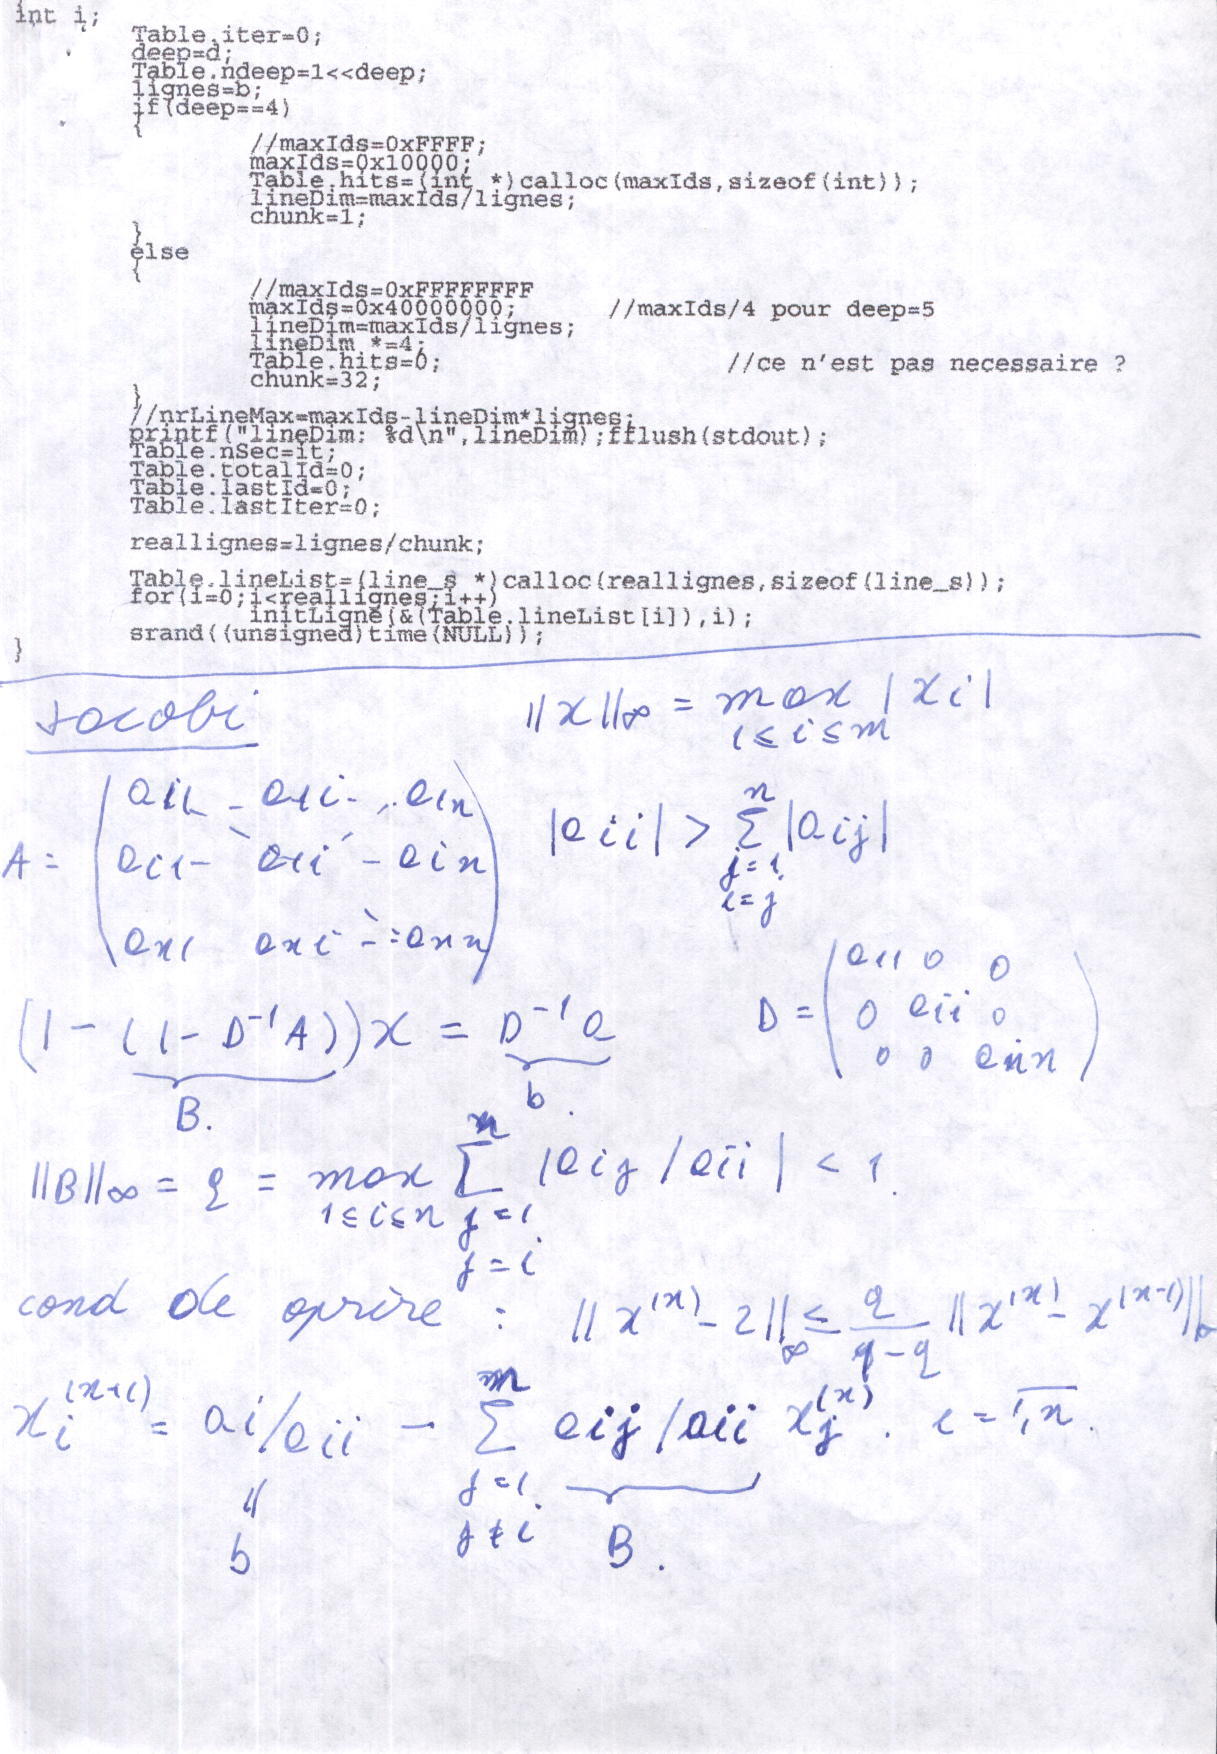 int i;
Table.iter=0;
deep=d;
Table.ndeep=1<<deep;
lignes=b;
if(deep==4)
{
//maxIds=0xFFFF;
maxIds=0x10000;
Table.hits=(int *)calloc(maxIds,sizeof(int));
lineDim=maxIds/lignes;
chunk=1;
}
else
{
//maxIds=0xFFFFFFFF
maxIds=0x40000000; //maxIds/4 pour deep=5
lineDim=maxIds/lignes;
lineDim *=4;
Table.hits=0; //ce n'est pas necessaire ?
chunk=32;
}
//nrLineMax=maxIds-lineDim*lignes;
printf("lineDim: %d\n",lineDim);fflush(stdout);
Table.nSec=it;
Table.totalId=0;
Table.lastId=0;
Table.lastIter=0;
reallignes=lignes/chunk;
Table.lineList=(line_s *)calloc(reallignes,sizeof(line_s));
for(i=0;i<reallignes;i++)
initLigne(&(Table.lineList[i]),i);
srand((unsigned)time(NULL));
}
Jacobi
||x||∞ = max |xi|
1≤i≤n
A = (a11 - a1i - .. a1n
ai1 - aii - ain
an1 ani - - ann)
|aii| > Σ |aij|
n
j=1
i=j
D = (a11 0 0
0 aii 0
0 0 ann)
(1 - (1 - D⁻¹A))x = D⁻¹a
B. b.
||B||∞ = q = max Σ |aij / aii| < 1.
1≤i≤n j=1
j=i
cond de oprire : ||x⁽ⁿ⁾ - z||∞ ≤ q/(1-q) ||x⁽ⁿ⁾ - x⁽ⁿ⁻¹⁾||∞
xi⁽ⁿ⁺¹⁾ = ai/aii - Σ aij/aii xj⁽ⁿ⁾. i = 1,n.
j=1
j≠i
b B.